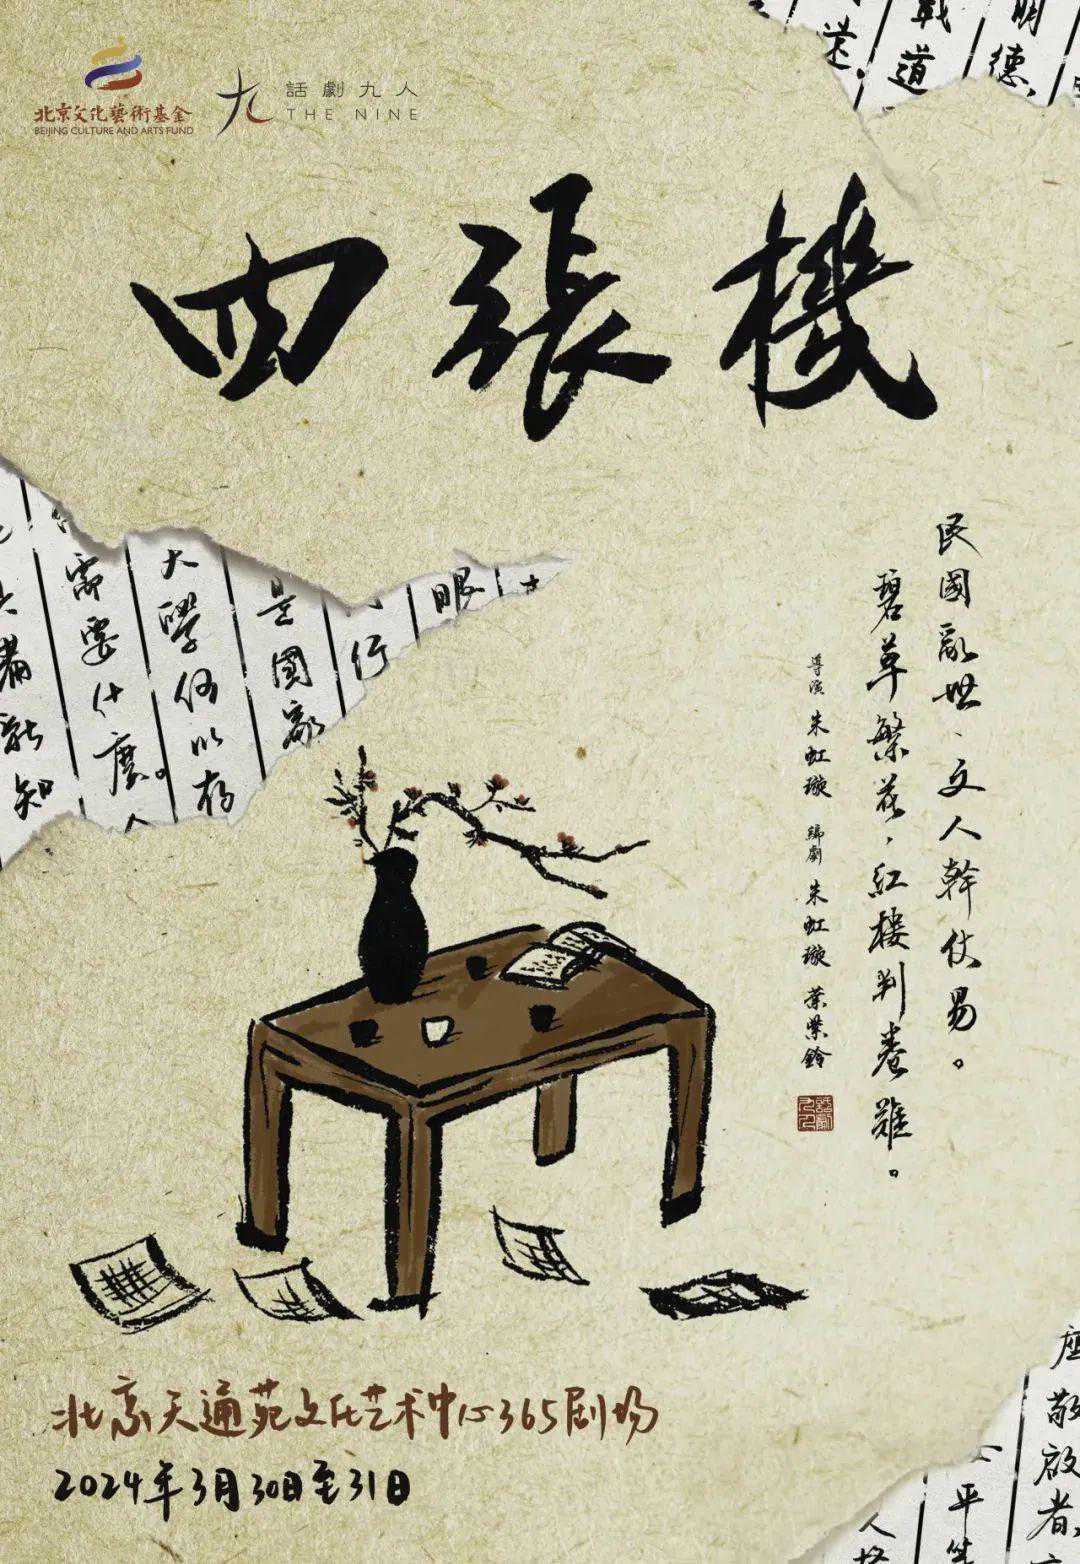 北京文化藝術基金
BEIJING CULTURE AND ARTS FUND
話劇九人
THE NINE
四張機
戰道
明德
需要什麼。人
大學何以存
是國家
行
眼
民國亂世，文人幹仗易。
碧草繁花，紅樓判卷難。
導演 朱虹璇 編劇 朱虹璇 葉紫鈴
話劇九人
北京天通苑文化艺术中心365剧场
2024年3月30日至31日
座敬啟者
平生
人格